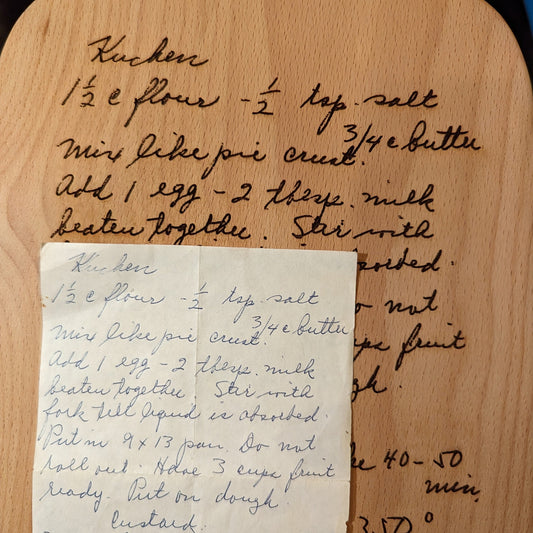 Kuchen
1 1/2 c flour - 1/2 tsp. salt
3/4 c butter
Mix like pie crust.
Add 1 egg - 2 tbsp. milk
beaten together. Stir with
absorbed.
not
fruit
40-50
min.
350°
Kuchen
1 1/2 c flour - 1/2 tsp. salt
3/4 c butter
Mix like pie crust.
Add 1 egg - 2 tbsp. milk
beaten together. Stir with
fork till liquid is absorbed.
Put in 9 x 13 pan. Do not
roll out. Have 3 cups fruit
ready. Put on dough.
Custard.